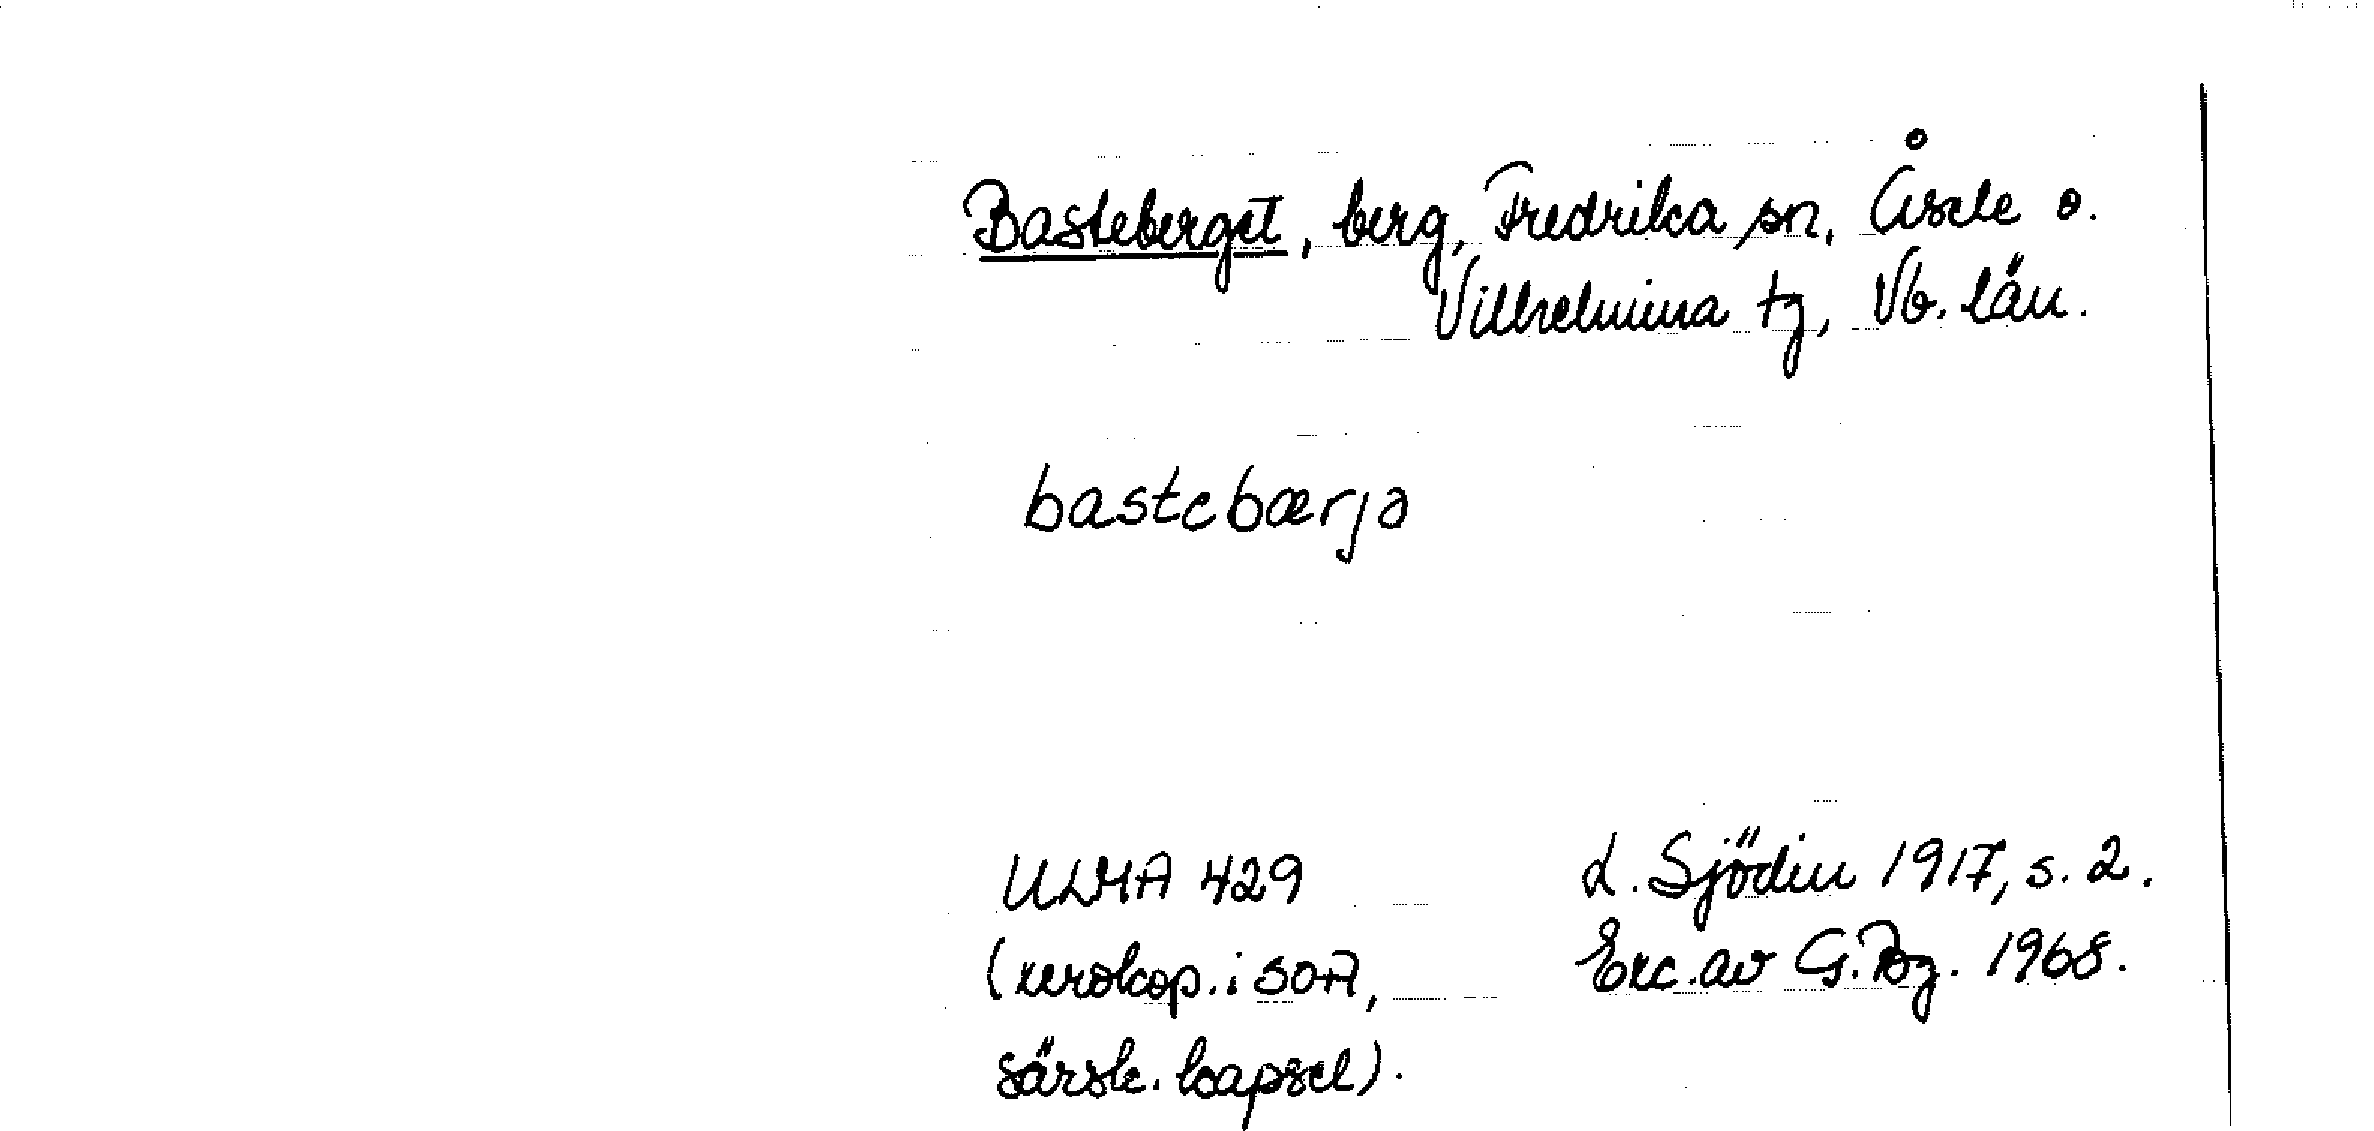 Basteberget, berg, Fredrika sn, Åsele o.
Vilhelmina tg, Vb. län.
bastebærjə
ULMA 429
(xerokop. i SOA,
särsk. kapsel).
L. Sjödin 1917, s. 2.
Exc. av G. Bg. 1968.